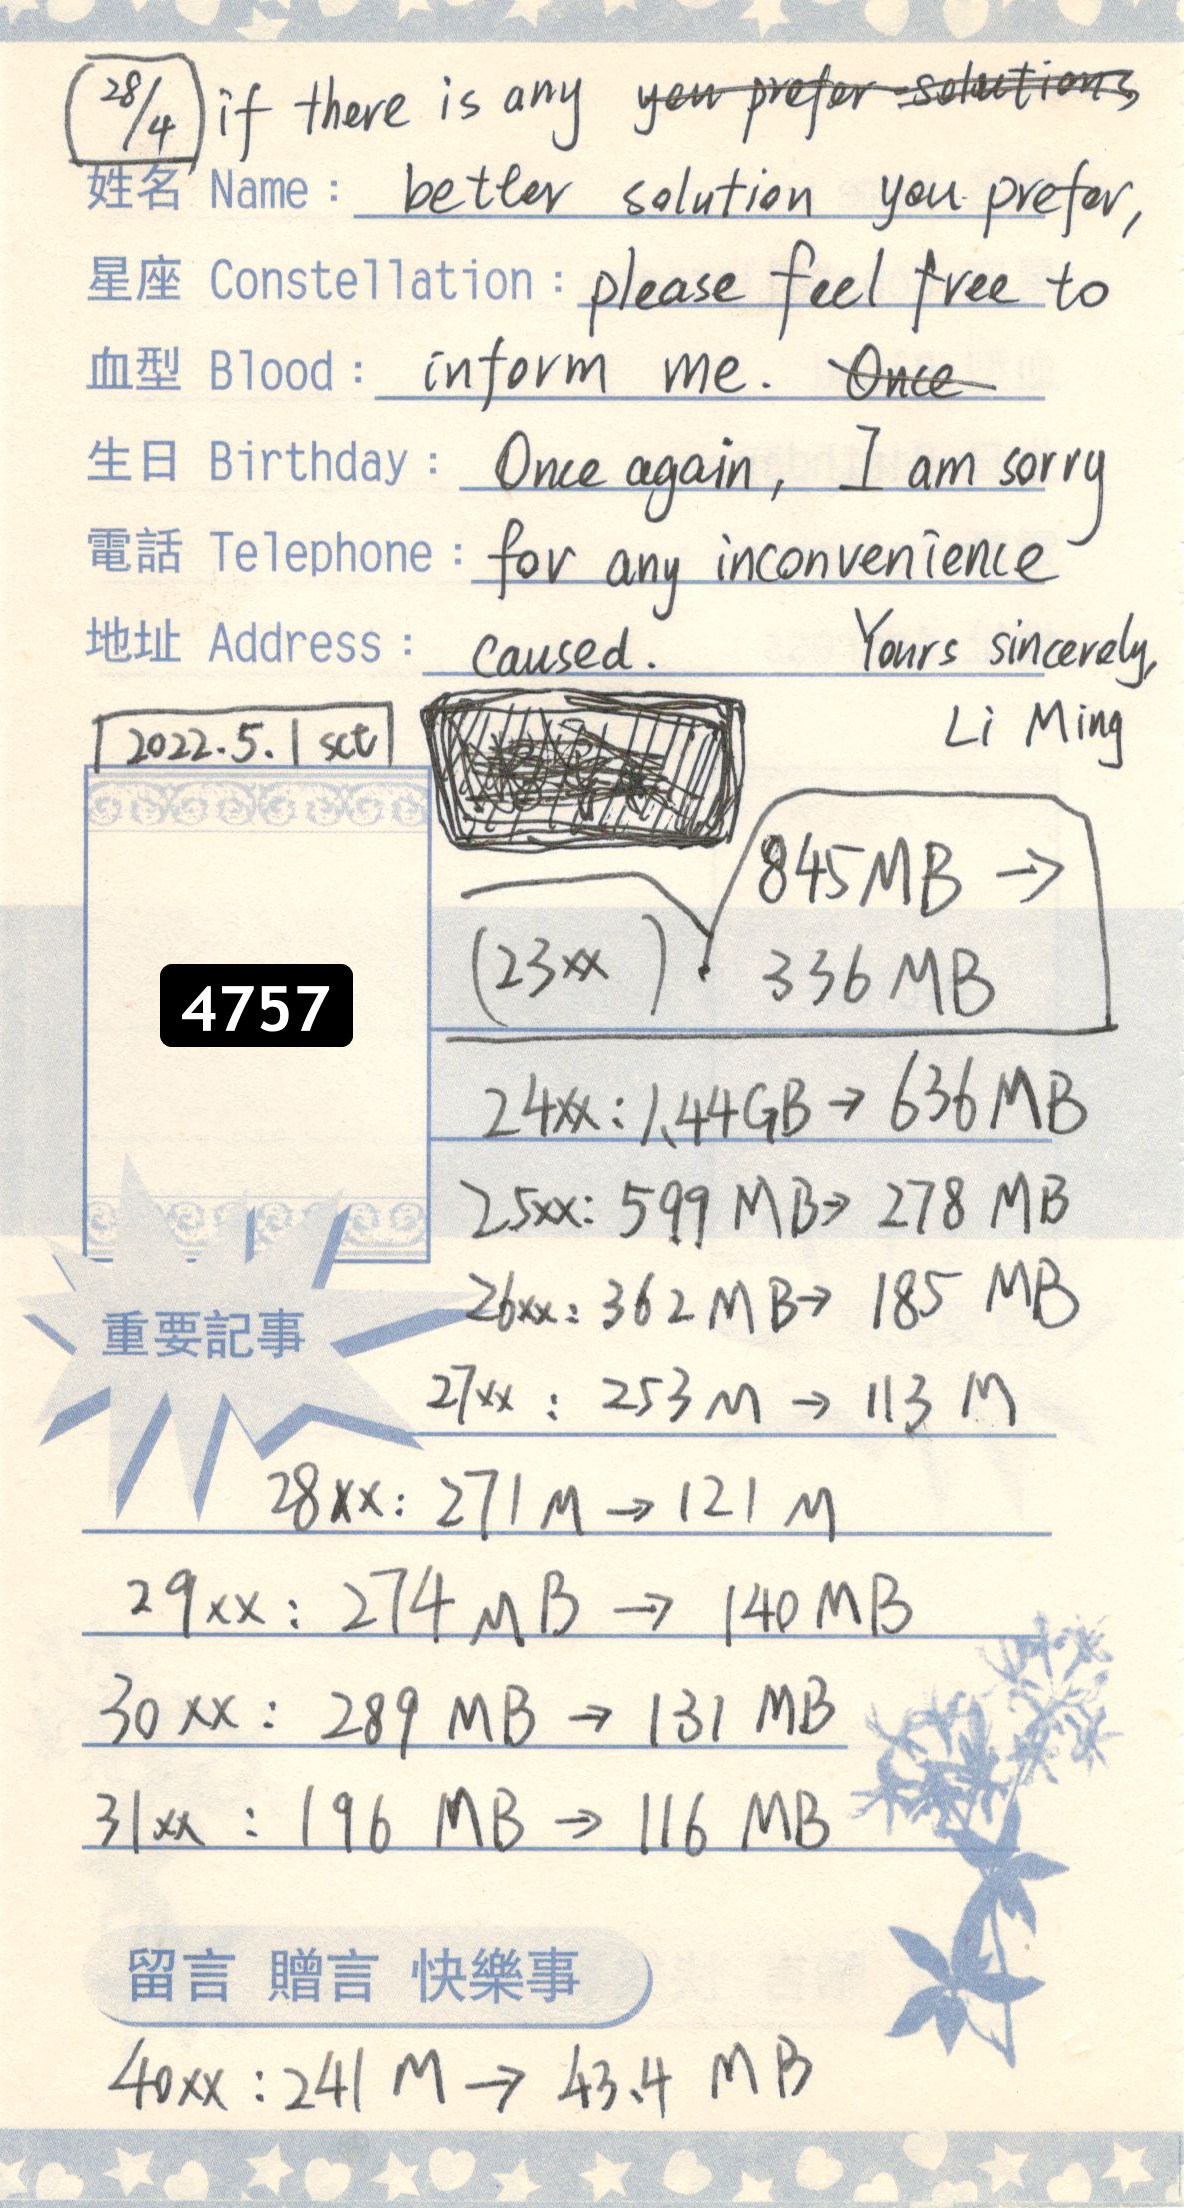 28/4 if there is any you prefer solutions
姓名 Name: better solution you prefer,
星座 Constellation: please feel free to
血型 Blood: inform me. Once
生日 Birthday: Once again, I am sorry
電話 Telephone: for any inconvenience
地址 Address: caused. Yours sincerely,
Li Ming
2022.5.1 sct
845MB →
(23xx) 336 MB
4757
24xx: 1.44GB → 636 MB
25xx: 599 MB → 278 MB
26xx: 362 MB → 185 MB
重要記事
27xx: 253 M → 113 M
28xx: 271 M → 121 M
29xx: 274 MB → 140 MB
30xx: 289 MB → 131 MB
31xx: 196 MB → 116 MB
留言 贈言 快樂事
40xx: 241 M → 43.4 MB